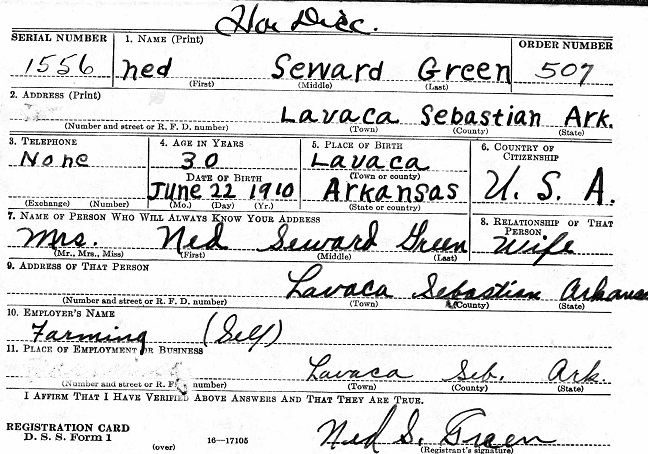 Hon Disc.
SERIAL NUMBER 1. NAME (Print) ORDER NUMBER
1556 Ned Seward Green 507
(First) (Middle) (Last)
2. ADDRESS (Print)
Lavaca Sebastian Ark.
(Number and street or R. F. D. number) (Town) (County) (State)
3. TELEPHONE 4. AGE IN YEARS 5. PLACE OF BIRTH 6. COUNTRY OF CITIZENSHIP
None 30 Lavaca U. S. A.
DATE OF BIRTH (Town or county)
June 22 1910 Arkansas
(Exchange) (Number) (Mo.) (Day) (Yr.) (State or country)
7. NAME OF PERSON WHO WILL ALWAYS KNOW YOUR ADDRESS 8. RELATIONSHIP OF THAT PERSON
Mrs. Ned Seward Green Wife
(Mr., Mrs., Miss) (First) (Middle) (Last)
9. ADDRESS OF THAT PERSON
Lavaca Sebastian Arkansas
(Number and street or R. F. D. number) (Town) (County) (State)
10. EMPLOYER'S NAME
Farming (Self)
11. PLACE OF EMPLOYMENT OR BUSINESS
Lavaca Seb. Ark.
(Number and street or R. F. D. number) (Town) (County) (State)
I AFFIRM THAT I HAVE VERIFIED ABOVE ANSWERS AND THAT THEY ARE TRUE.
REGISTRATION CARD
D. S. S. Form 1 (over) 16—17105 Ned S. Green
(Registrant's signature)